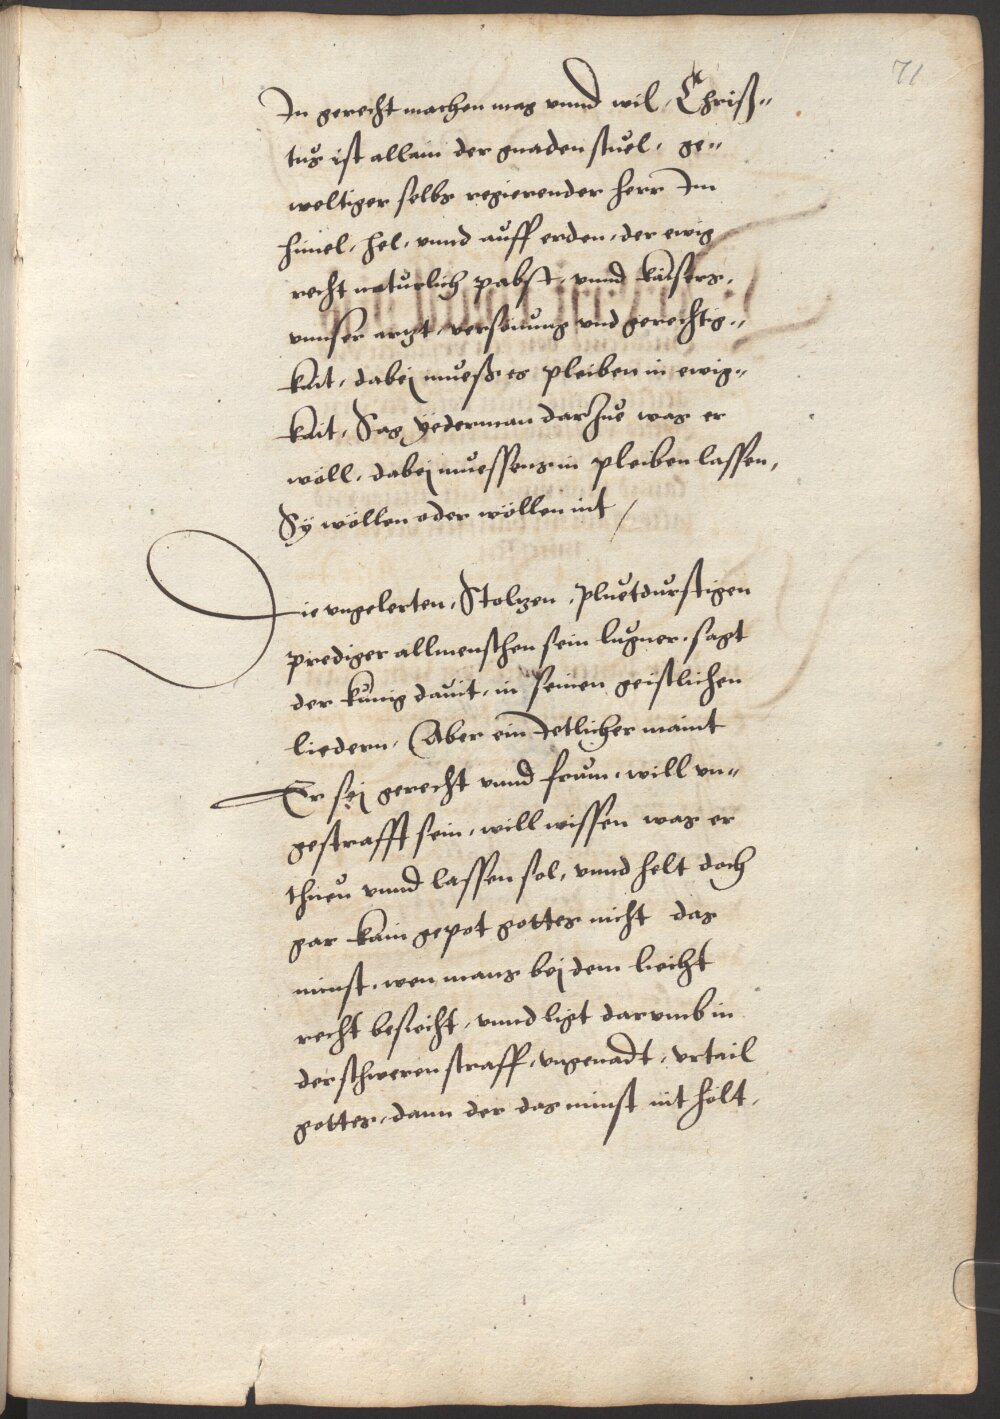 71
In gerecht machen mag vnnd wil, Chriß„
tus ist allain der gnaden stuel, ge„
weltiger selbs regierender herr Im
himel, hel, vnnd auff erden, der ewig
recht naturlich pabst, vnnd kaisers,
vnnser arzt, versonung vnd gerechtig„
kait, dabej mueß es pleiben in ewig„
kait, Sag yederman darzue was er
wöll, dabej muessens in pleiben lassen,
Sÿ wöllen oder wöllen nit /
Die vngelerten, Stolzen, pluetdurstigen
prediger all menschen sein lugner, sagt
der kunig dauit, in seinen geistlichen
liedern, Aber ein Ietlicher maint
Er sej gerecht vnnd frum, will vn„
gestrafft sein, will wissen was er
thuen vnnd lassen sol, vnnd helt doch
gar kain gepot gottes nicht das
minst, wen mans bej dem liecht
recht besiecht, vnnd ligt darumb in
der schweren straff, vngenadt, vrtail
gottes, dann der das minst nit holt,